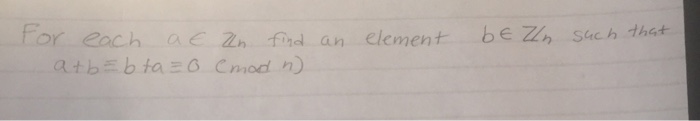 For each a ∈ ℤn find an element b ∈ ℤn such that
a+b≡b+a≡0 (mod n)